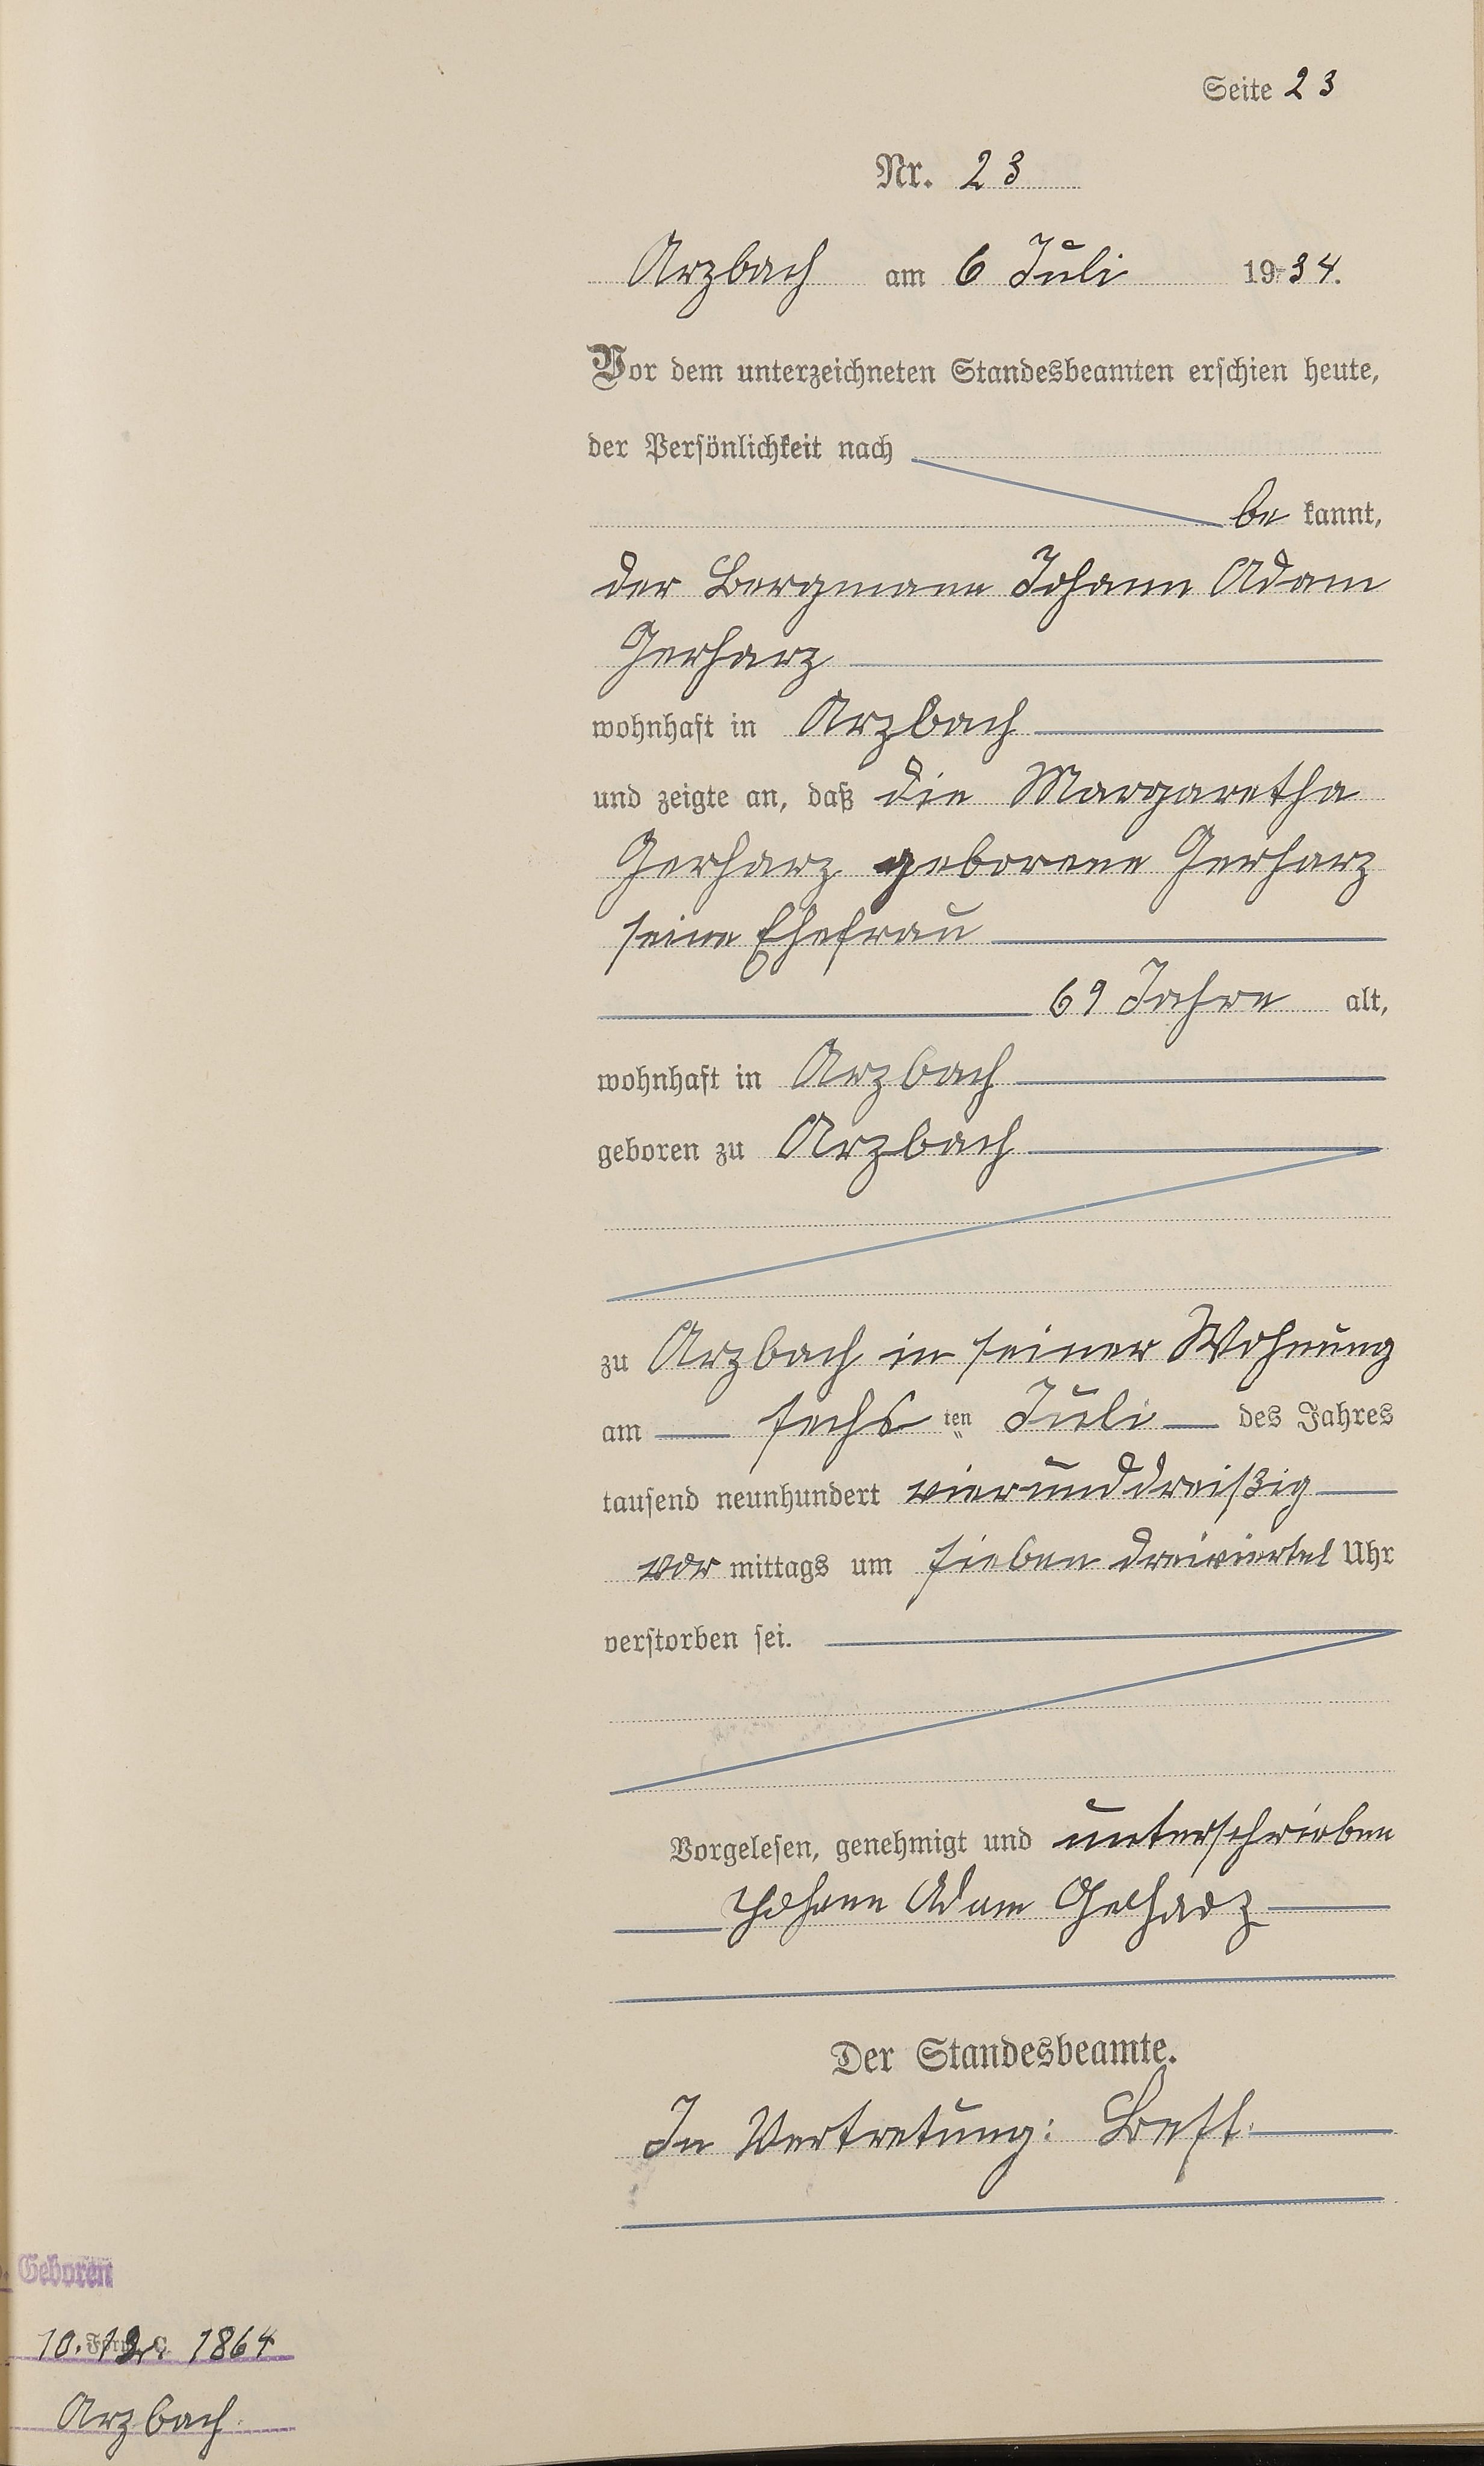 Seite 23
Nr. 23
Arzbach am 6 Juli 1934.
Vor dem unterzeichneten Standesbeamten erschien heute,
der Persönlichkeit nach
be kannt,
der Bergmann Johann Adam
Gerharz
wohnhaft in Arzbach
und zeigte an, daß die Margaretha
Gerharz geborene Gerharz
seine Ehefrau
69 Jahre alt,
wohnhaft in Arzbach
geboren zu Arzbach
zu Arzbach in seiner Wohnung
am sechs ten Juli des Jahres
tausend neunhundert vierunddreißig
vor mittags um sieben dreiviertel Uhr
verstorben sei.
Vorgelesen, genehmigt und unterschrieben
Johann Adam Gerharz
Der Standesbeamte.
In Vertretung:
Geboren
10. 1864
Arzbach